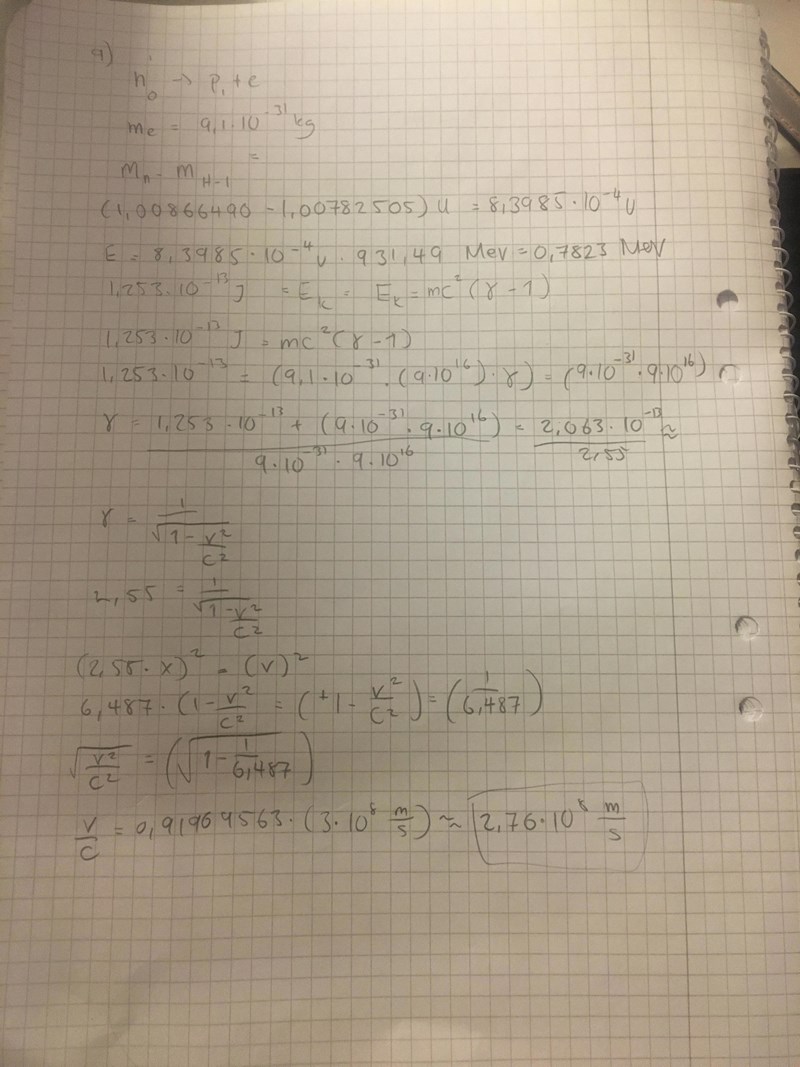 a)
n₀ → p₁ + e
me = 9,1·10⁻³¹ kg
Mn - M H-1 =
(1,00866490 - 1,00782505) U = 8,3985·10⁻⁴ U
E = 8,3985·10⁻⁴ U · 931,49 MeV = 0,7823 MeV
1,253·10⁻¹³ J = E_k = E_k = mc²(γ - 1)
1,253·10⁻¹³ J = mc²(γ - 1)
1,253·10⁻¹³ = (9,1·10⁻³¹ · (9·10¹⁶) · γ) = (9·10⁻³¹ · 9·10¹⁶)
γ = (1,253·10⁻¹³ + (9·10⁻³¹ · 9·10¹⁶)) / (9·10⁻³¹ · 9·10¹⁶) = 2,063·10⁻¹³ / 2,55 ≈
γ = 1/√(1 - v²/c²)
2,55 = 1/√(1 - v²/c²)
(2,55 · x)² = (v)²
6,487 · (1 - v²/c² = (+1 - v²/c²) = (1/6,487)
√(v²/c²) = (√(1 - 1/6,487))
v/c = 0,91969563 · (3·10⁸ m/s) ≈ 2,76·10⁸ m/s